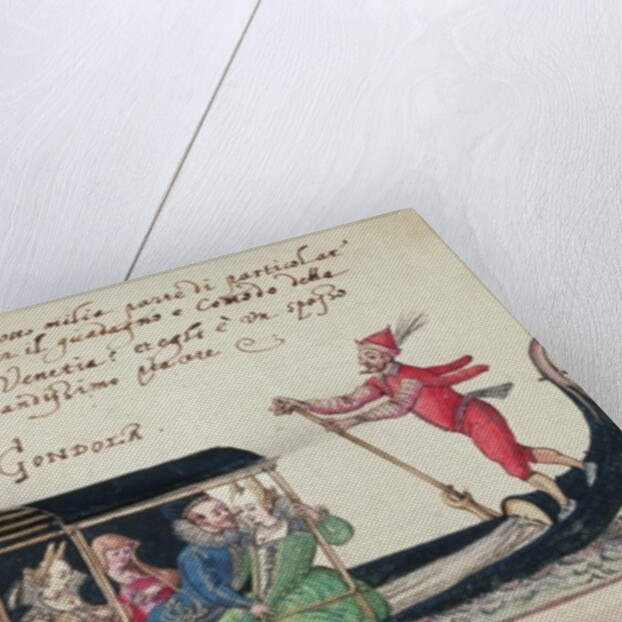 otto milia parte di particolar'
il guadagno e Comodo delle
Venetia: et egli è un spasso
andissimo piacere
GONDOLA